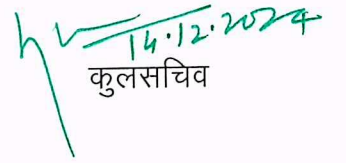 14.12.2024
कुलसचिव